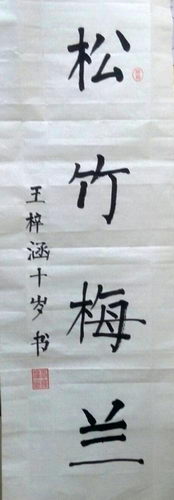 松竹梅兰
王梓涵十岁书